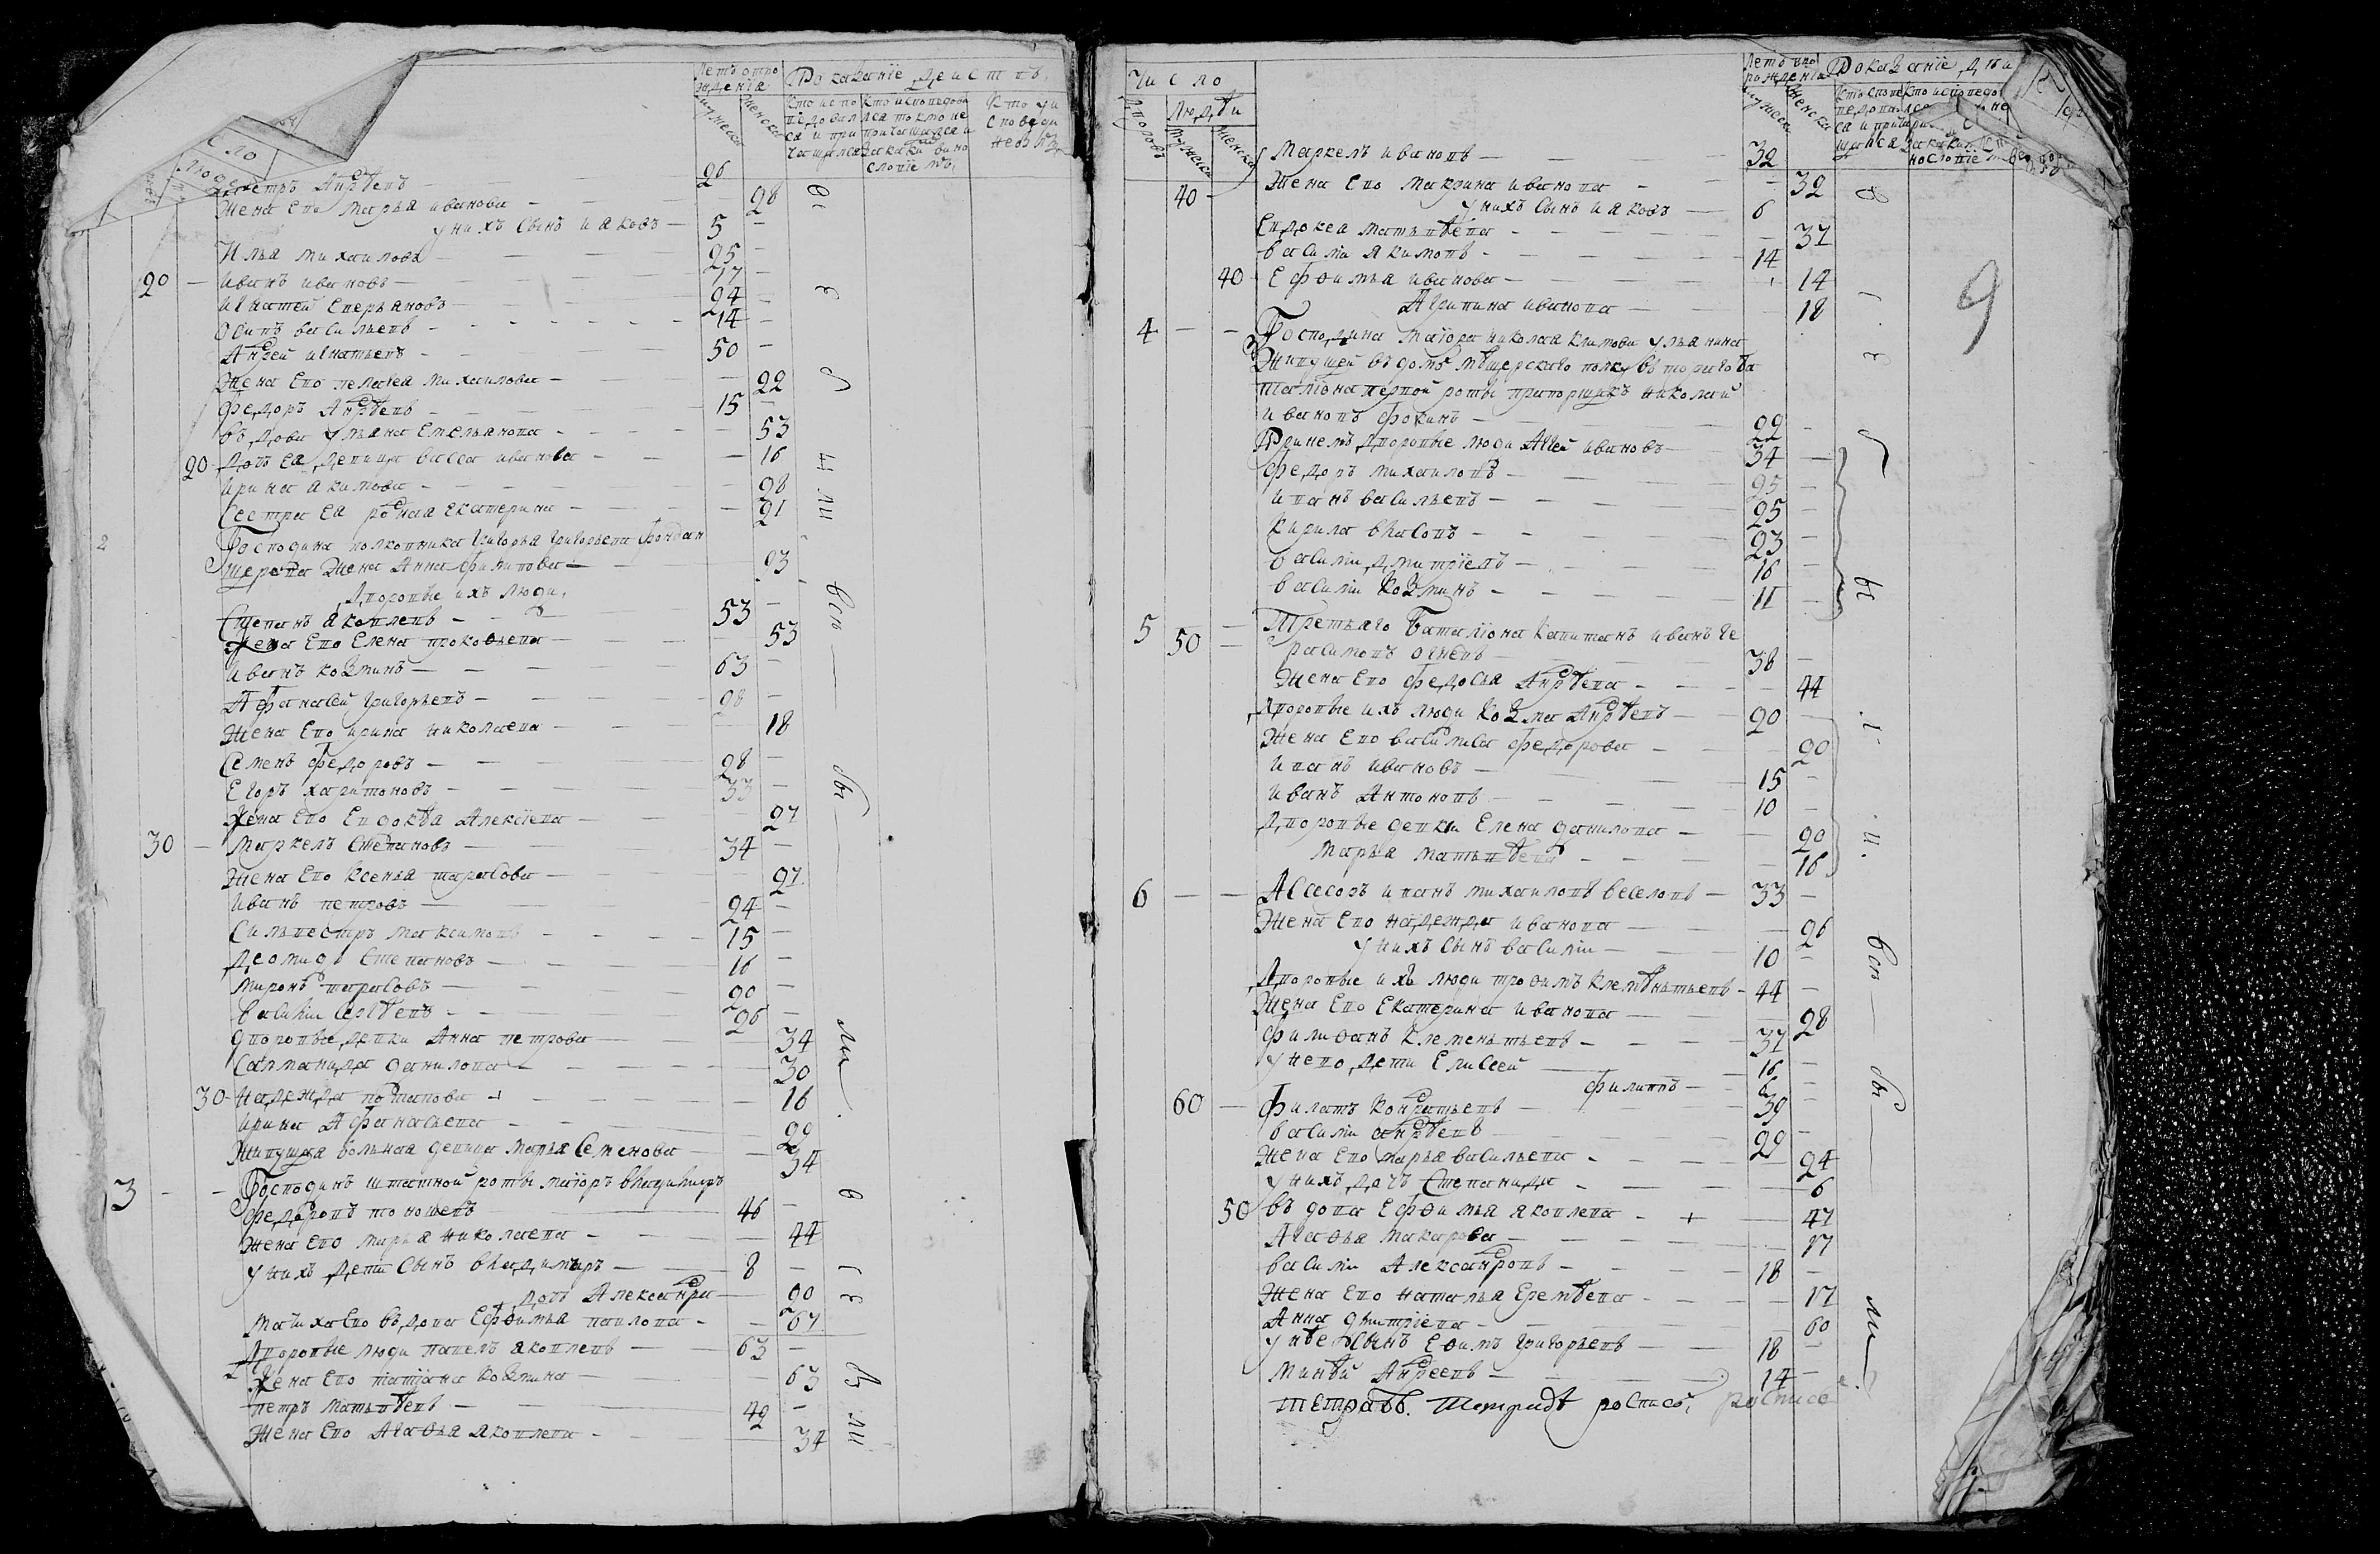 Летъ отро
жденїя
Показанїе действъ
мужеска
женска
Кто испо
ведовался
са и при
чащался
Кто исповедов
лса токмо не
причащался и
за какимъ вино
словїемъ
Кто у и
споведи
небылъ
сло
людеи
Петръ Андреевъ — 26
Жена ево Марья иванова — 28
у нихъ сынъ иаковъ — 5
Илья михаиловъ — 25
20 — иванъ ивановъ — 17
игнатей Аверьяновъ — 24
осипъ васильевъ — 14
Андрей игнатьевъ — 50
Жена ево пелагея михаилова — 22
федоръ Андреевъ — 15
въдова ульяна Емельянова — 53
20 — дочь ея девица васса иванова — 16
ирина акимова — 28
Сестра ея родная екатерина — 21
2
Господина полковника Григорья Григорьева фондан
жена Анна филипова — 23
дворовые ихъ люди
Степанъ яковлевъ — 53
Жена ево Елена прокоѳьева — 53
иванъ козминъ — 63
Афанасей григорьевъ — 28
Жена ево ирина николаева — 18
Семенъ федоровъ — 28
Егоръ харитоновъ — 33
Жена ево Евдокѣя Алексїева — 27
30 — Маркелъ Степановъ — 34
Жена ево ксенья тарасова — 27
иванъ петровъ — 24
Сильвестръ максимовъ — 15
деомидъ Степановъ — 16
миронъ тарасовъ — 20
василии Сергѣевъ — 26
дворовые девки Анна петрова — 34
Саломанида данилова — 30
30 — надежда потапова — 16
ирина Афанасьева — 22
Живущая вольная девица марья Семенова — 34
3 — Господинъ штатной роты маїоръ владимиръ
федоровъ — 46
Жена ево марья николаева — 44
у нихъ дети сынъ владимиръ — 8
дочь Александра — 20
Мачиха ево въдова Ефѳимья павлова — 67
дворовые люди павелъ яковлевъ — 63
Жена ево татїана козмина — 63
петръ матьвѣевъ — 42
Жена ево Агаѳья яковлева — 34
всѣ
бы
ли
Число
дворовъ
Людѣи
мужеска
женска
Летъ отро
жденїя
Показанїе дѣи
мужеска
женска
Маркелъ ивановъ — 32
40 — Жена ево макрина иванова — 32
у нихъ сынъ иаковъ — 6
Евдокея матьвѣева — 37
василии якимовъ — 14
40 — Ефѳимья иванова — 14
Агрипина иванова — 18
9
4 — Господина маїора николая климова ульянина
Живущей въ домѣ мѣщерскаго полку втораго ба
талїона первой роты прапорщикъ николай
ивановъ фокинъ — 22
При немъ дворовые люди Агей ивановъ — 34
федоръ михаиловъ — 25
иванъ васильевъ — 25
кирила власовъ — 23
василии дмитрїевъ — 16
василии козминъ — 11
5 50 — Третьяго баталїона капитанъ иванъ Ге
расимовъ — 38
Жена ево федосья Андрѣева — 44
дворовые ихъ люди козма Андрѣевъ — 20
Жена ево василиса федорова — 20
иванъ ивановъ — 15
иванъ Антоновъ — 10
дворовые девки Елена данилова — 20
Марья матьвѣева — 16
6 — Асесоръ иванъ михаиловъ веселовъ — 33
Жена ево надежда иванова — 26
у нихъ сынъ василии — 10
дворовые ихъ люди троѳимъ клемѣнтьевъ — 44
Жена ево Екатерина иванова — 28
филиѳанъ клеменьтьевъ — 37
у нево дети Елисей — 16
филипъ — 6
60 — филатъ кондратьевъ — 39
василии андрѣевъ — 29
Жена ево марья васильева — 24
у нихъ дочь Степанида — 6
50 въдова Ефѳимья яковлева — 47
Агаѳья макарова — 17
василии Александровъ — 18
Жена ево наталья Еремѣева — 17
Анна дмитрїева — 60
у нѣе сынъ Еѳимъ григорьевъ — 18
Минѣй Андреевъ — 14
тетрать. Тетрадь росписо. росписе
всѣ
бы
ли